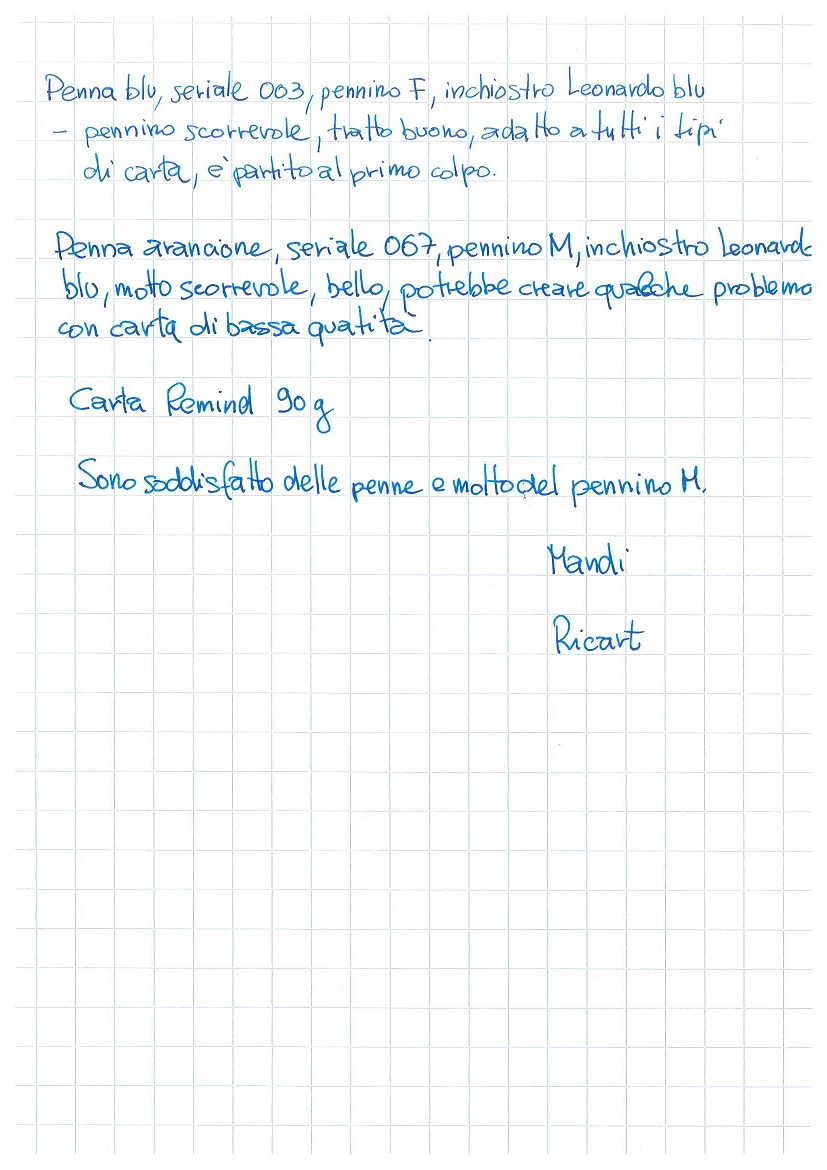 Penna blu, seriale 003, pennino F, inchiostro Leonardo blu
- pennino scorrevole, tratto buono, adatto a tutti i tipi
di carta, è partito al primo colpo.
Penna arancione, seriale 067, pennino M, inchiostro Leonardo
blu, molto scorrevole, bello, potrebbe creare qualche problema
con carta di bassa qualità.
Carta Remind 90 g
Sono soddisfatto delle penne e molto del pennino M.
Mandi
Ricart